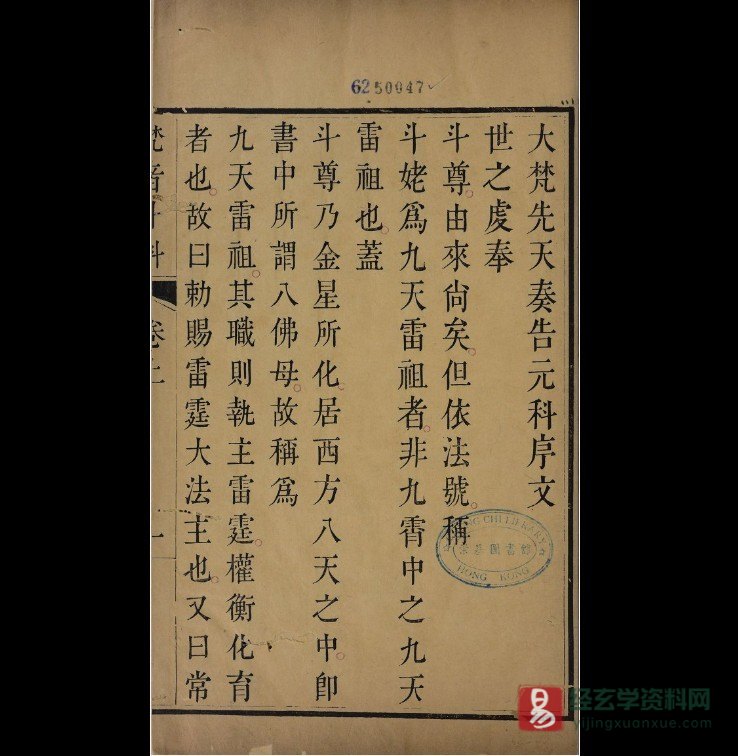 6250047
大梵先天奏告元科序文
世之虔奉
斗尊。由來尙矣。但依法號。稱
斗姥爲九天雷祖者。非九霄中之九天
雷祖也。蓋
斗尊乃金星所化。居西方八天之中。卽
書中所謂八佛母。故稱爲
九天雷祖。其職則執主雷霆。權衡化育
者也。故曰勅賜雷霆大法主也。又曰常
梵音斗科
卷上
一
HONG KONG
圖書館
易
经玄学资料网
yijingxuanxue.com